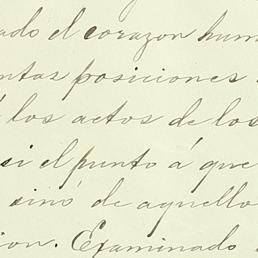 ado el corazon hum
ntas posiciones
los actos de los
si el punto á que
sinó de aquello
ion. Examinado